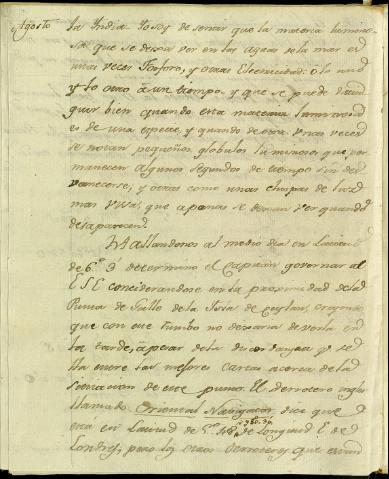 Agosto
la India. Yo soy de sentir que la materia lumino-
sa que se dexa ver en las aguas de la mar es
unas veces Fosforo, y otras Electricidad: ó lo uno
y lo otro à un tiempo. y que se puede distin-
guir bien quando esta materia luminosa
es de una especie, y quando de otra. Unas veces
se notan pequeños globulos luminosos que per-
manecen algunos segundos de tiempo sin des-
vanecerse; y otras como unas chispas de luz
mas viva, que apenas se dexan ver quando
desaparecen.
Hallandonos al medio dia en Latitud
de 6.º 3' determinó el Capitan governar al
E S E considerandose en la proximidad de la
Punta de Gallo de la Isla de Ceylan, creyendo
que con este rumbo no dexaria de verla en
la tarde, à pesar de la discordancia que se
lla entre las mejores Cartas acerca de la
situacion de este punto. El derrotero ingles
llamado Oriental Navigator dice que
está en Latitud de 5.º 48' de Longitud E de
Londres; pero los otros derroteros que